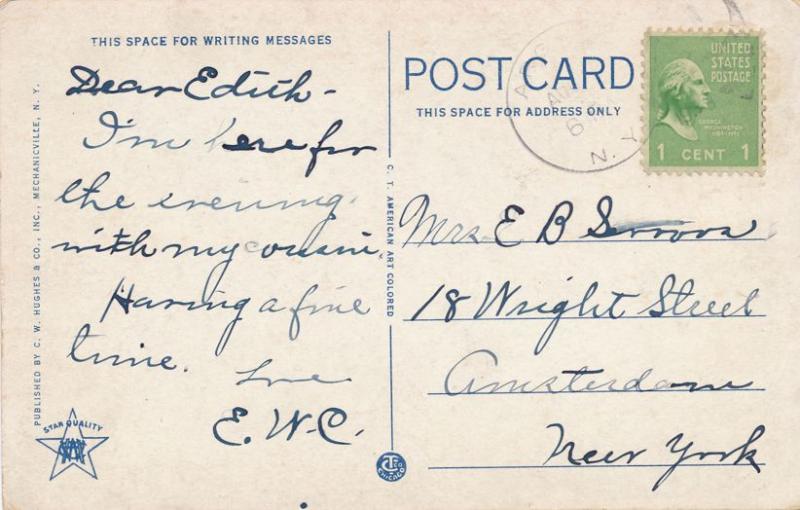 THIS SPACE FOR WRITING MESSAGES
Dear Edith-
I'm here for
the evening.
with my cousin.
Having a fine
time.
Love
E.W.C.
PUBLISHED BY C. W. HUGHES & CO., INC., MECHANICVILLE, N. Y.
STAR QUALITY
C. T. AMERICAN ART COLORED
CT CO
CHICAGO
POST CARD
THIS SPACE FOR ADDRESS ONLY
N.Y.
UNITED
STATES
POSTAGE
GEORGE
WASHINGTON
1 CENT 1
Mrs E B
18 Wright Street
Amsterdam
New York